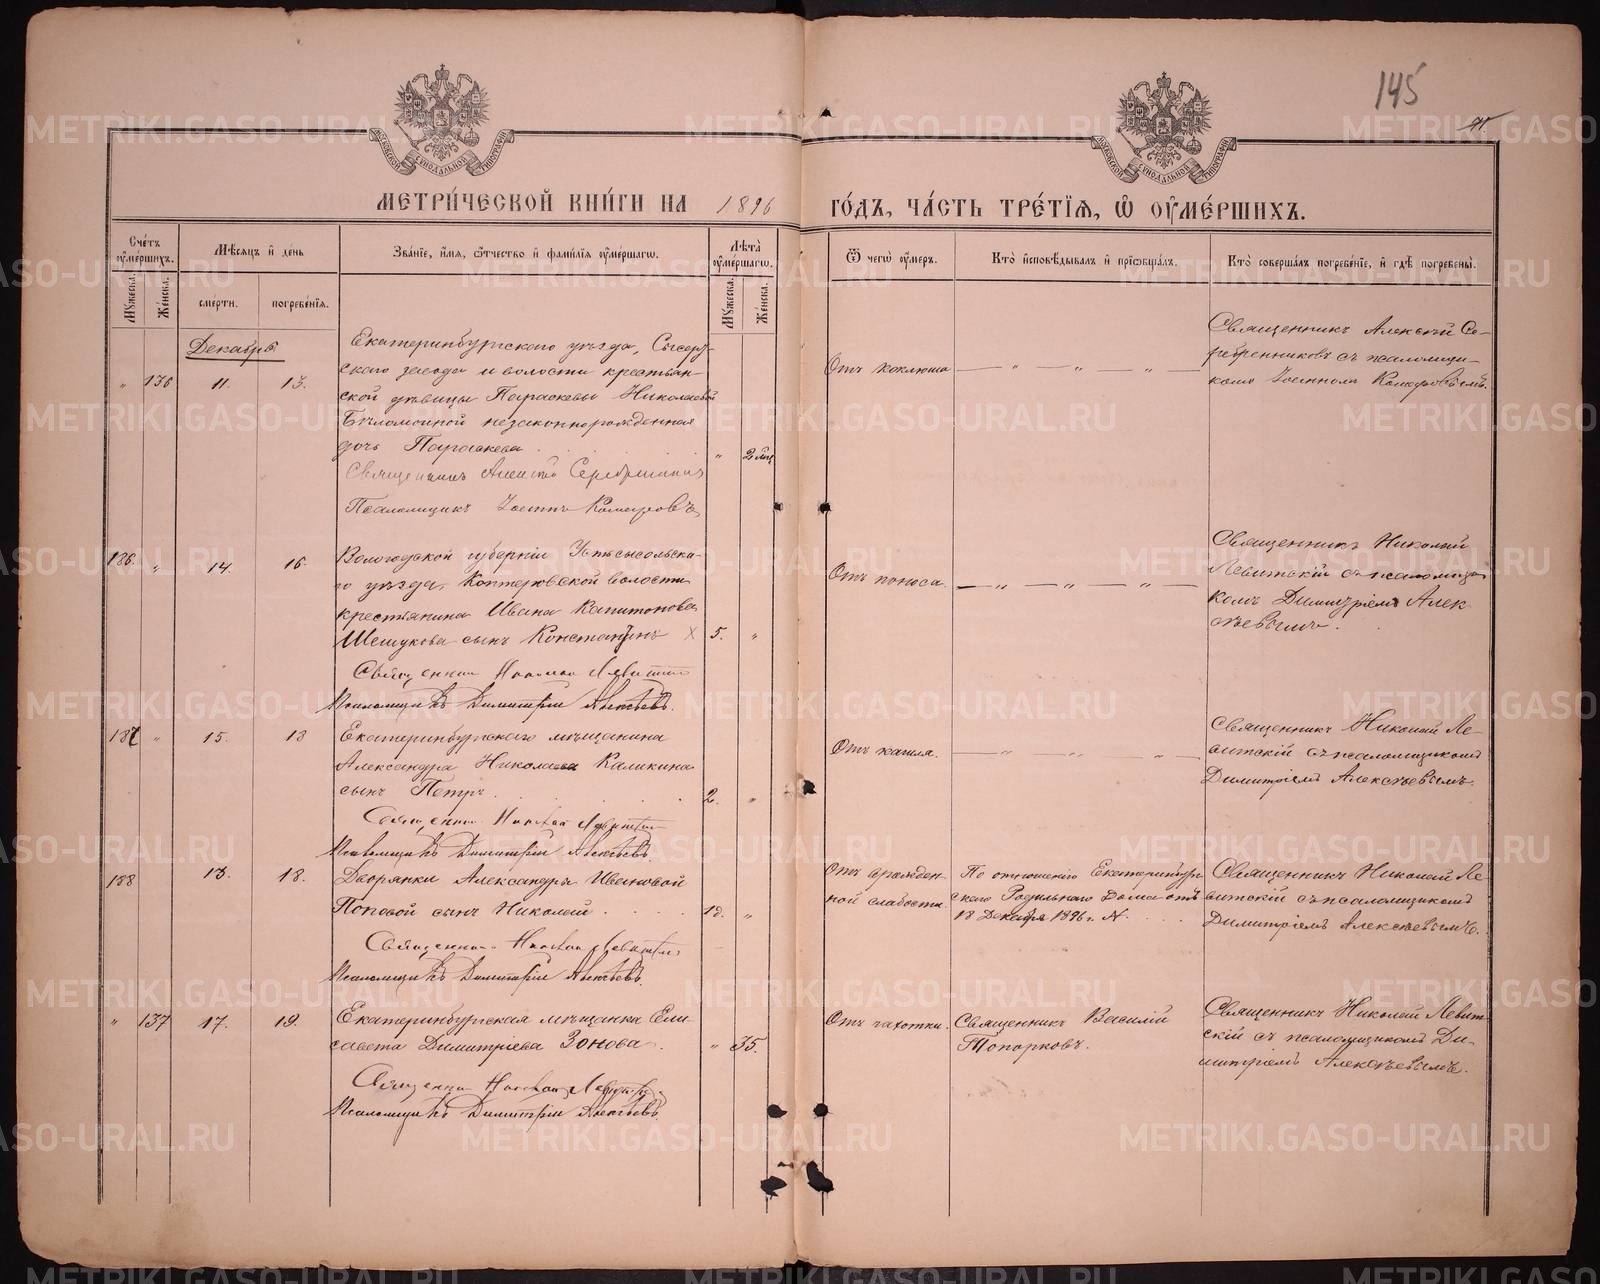 145
МЕТРИ́ЧЕСКОЙ КНИ́ГИ НА 1896 ГО́ДЪ, ЧА́СТЬ ТРЕ́ТІѦ, Ѿ ОУМЕ́РШИХЪ.
МОСКОВСКОЙ СѴНОДАЛЬНОЙ ТИПОГРАФІИ
МОСКОВСКОЙ СѴНОДАЛЬНОЙ ТИПОГРАФІИ
Сче́тъ оуме́ршихъ.
Мꙋжеска.
Же́нска.
Мѣ́сяцъ и҆ де́нь
сме́рти.
погребе́нїѧ.
Зва́нїе, и҆́мѧ, ѻ҆́тчество и҆ фами́лїѧ оуме́ршагѡ.
Лѣ́та оуме́ршагѡ.
Мꙋжеска.
Же́нска.
Ѿ чегѡ̀ оу́меръ.
Кто̀ и҆сповѣ́дывалъ и҆ прїѡбща́лъ.
Кто̀ соверша́лъ погребе́нїе, и҆ гдѣ̀ погребены̀.
Декабрь
" 136 11. 13.
Екатеринбургскаго уѣзда, Сысерт-
скаго завода и волости крестьян-
ской дѣвицы Параскевы Николаевой
Бѣломоиной незаконнорожденная
дочь Параскева
" 2 мѣс
Отъ коклюша
— " — " — " —
Священникъ Алексій Се-
ребренниковъ съ псаломщи-
комъ Іоанномъ
Священникъ Алексій
Псаломщикъ Іоаннъ
186. " 14. 16.
Вологодской губерніи Устьсысольска-
го уѣзда, волости
крестьянина Ивана Капитонова
Шешукова сынъ Константинъ х
5. "
Отъ поноса.
— " — " — " —
Священникъ Николай
Левитскій съ псаломщи-
комъ Димитріемъ Алек-
сѣевымъ.
Священникъ Николай Левитскій
Псаломщикъ Димитрій Алексѣевъ.
187 " 15. 18
Екатеринбургскаго мѣщанина
Александра Николаева Каликина
сынъ Петръ
2. "
Отъ кашля.
— " — " — " —
Священникъ Николай Ле-
витскій съ псаломщикомъ
Димитріемъ Алексѣевымъ.
Священникъ Николай Левитскій
Псаломщикъ Димитрій Алексѣевъ
188 13. 18.
Дворянки Александры Ивановой
Поповой сынъ Николай
1д. "
Отъ врожден-
ной слабости
По отношенію Екатеринбург-
скаго Родильнаго Дома отъ
18 Декабря 1896 г. №
Священникъ Николай Ле-
витскій съ псаломщикомъ
Димитріемъ Алексѣевымъ.
Священникъ Николай Левитскій
Псаломщикъ Димитрій Алексѣевъ.
" 137 17. 19.
Екатеринбургская мѣщанка Ели-
савета Димитріева Зонова.
" 35.
Отъ чахотки.
Священникъ Василій
Топорковъ.
Священникъ Николай Левит-
скій съ псаломщикомъ Ди-
митріемъ Алексѣевымъ.
Священникъ Николай Левитскій
Псаломщикъ Димитрій Алексѣевъ
METRIKI.GASO-URAL.RU